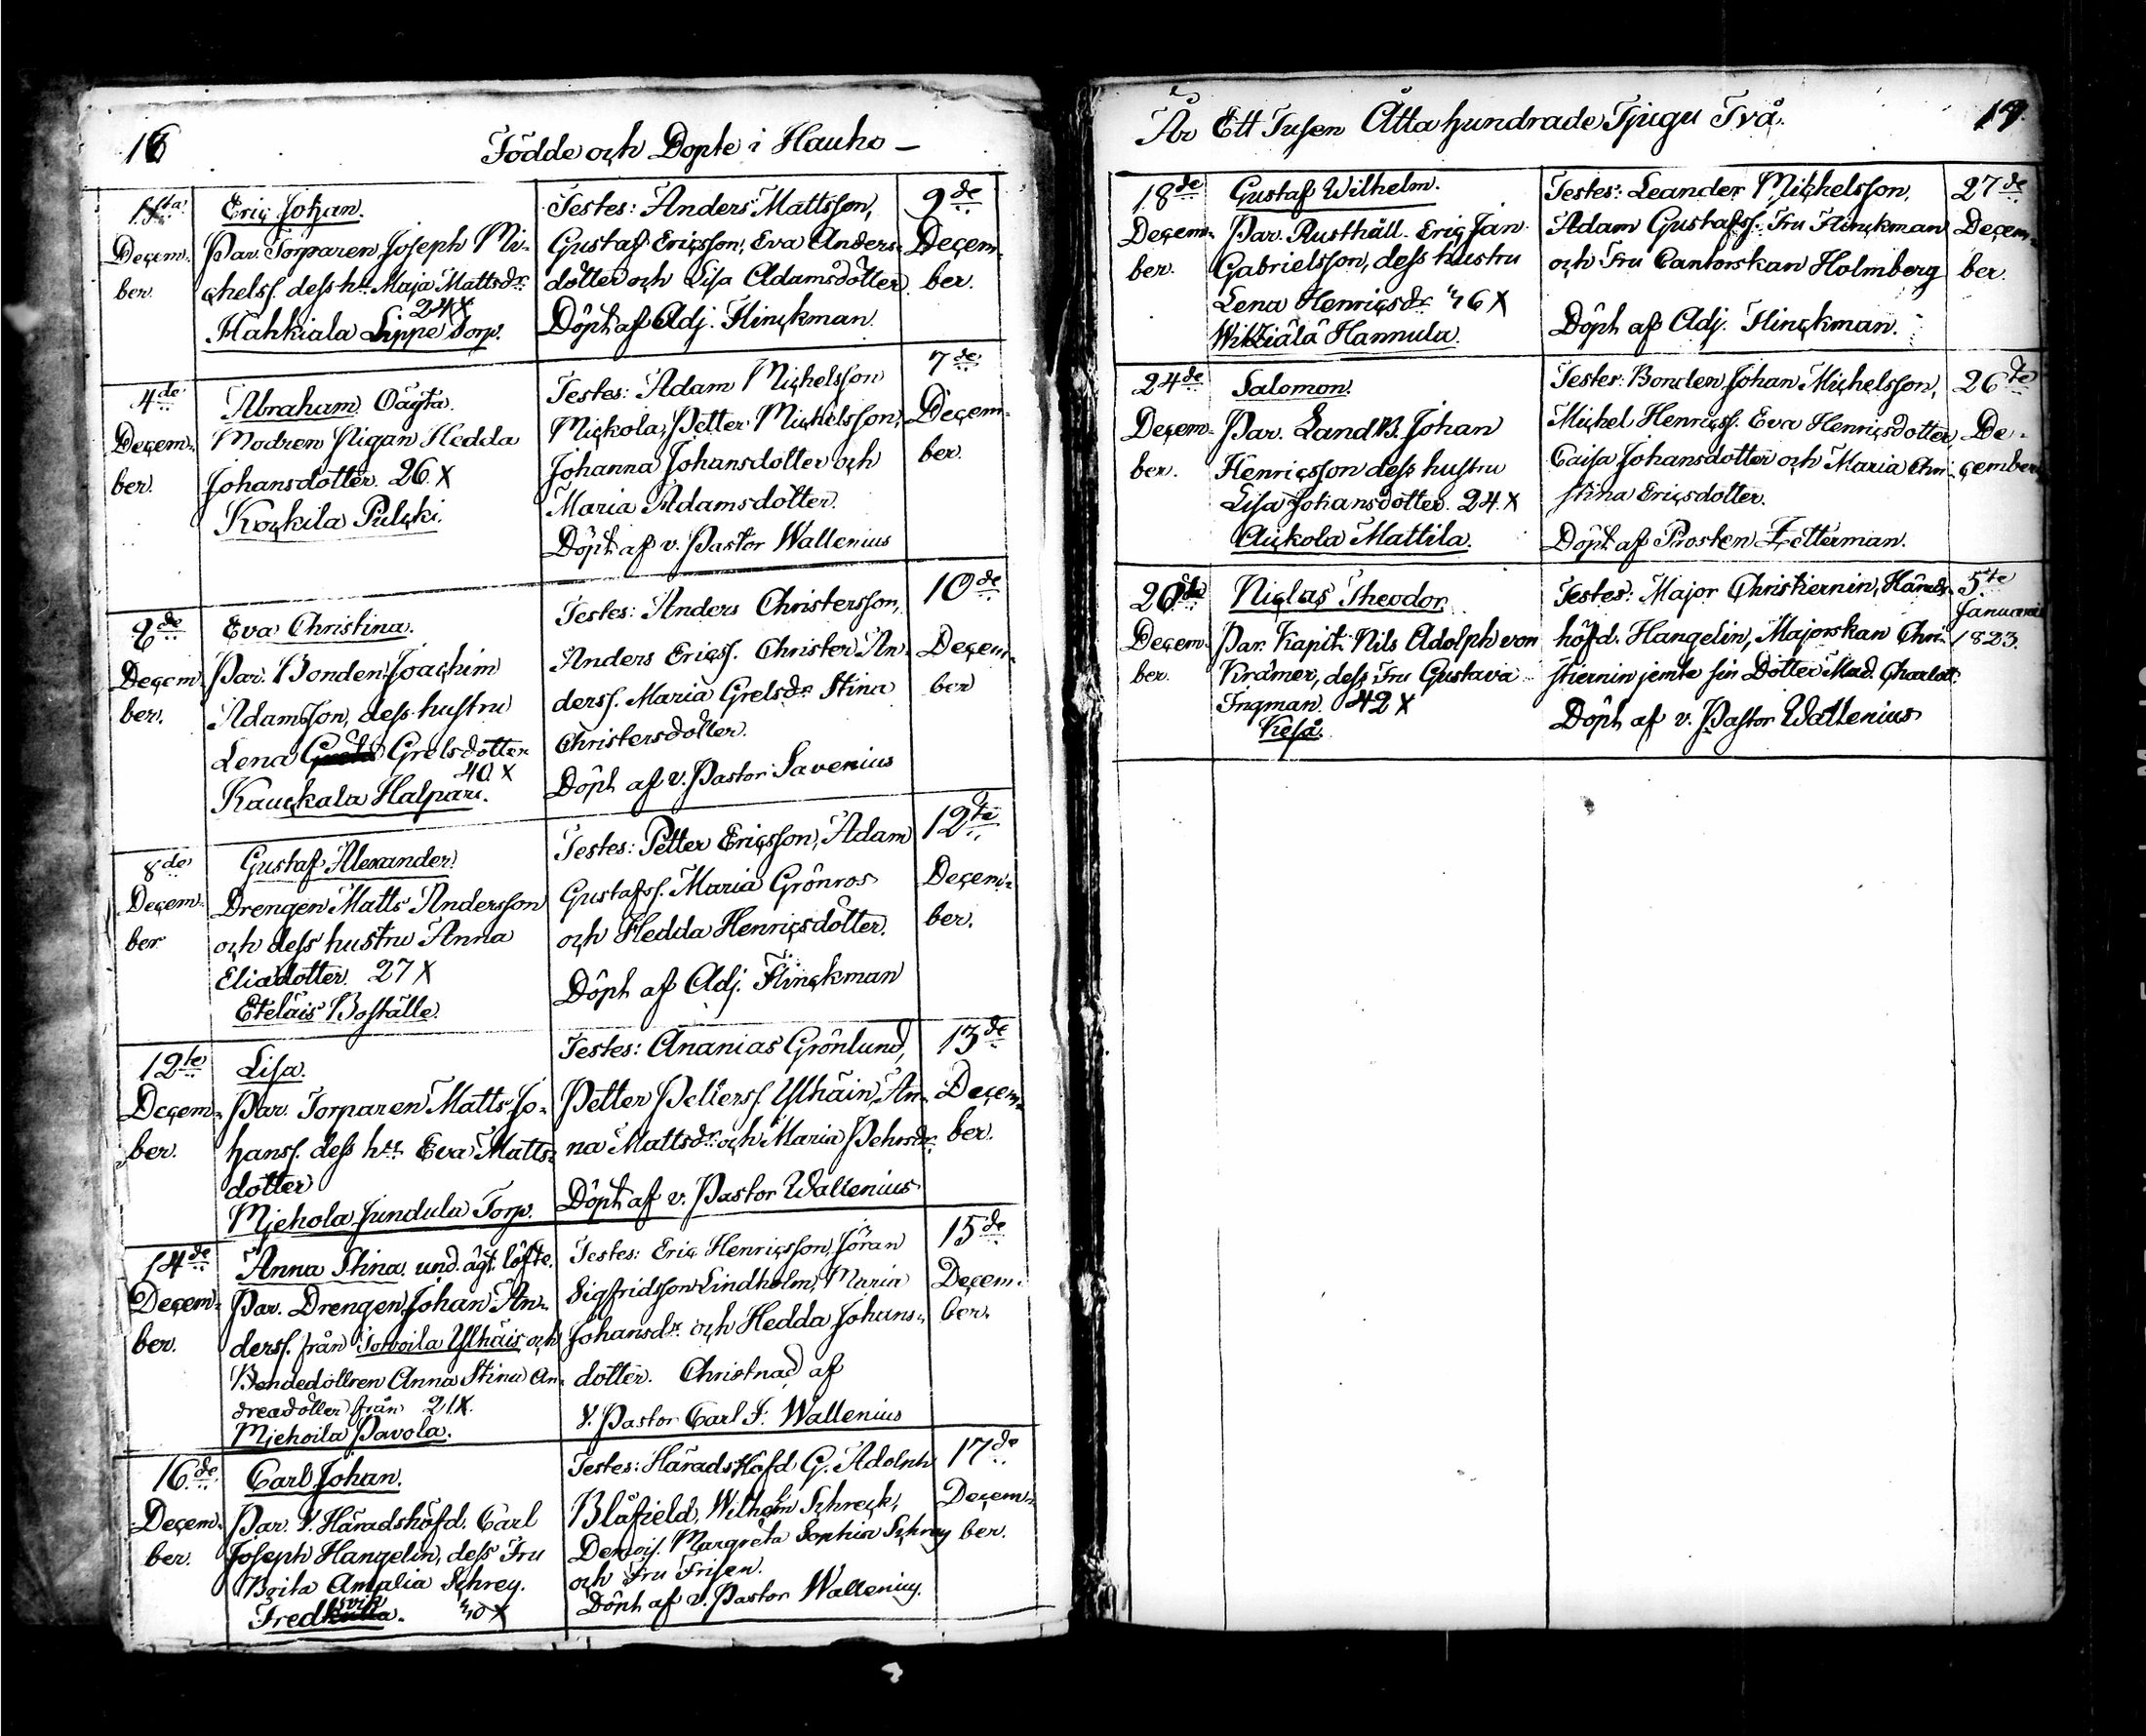 16
Födde och Döpte i Hauho –
1sta
Decem-
ber.
Eric Johan.
Par. Torparen Joseph Mi-
chelss. dess h. Maja Mattsdr
24 X
Hahkiala Sippe torp.
Testes: Anders Mattsson,
Gustaf Ericsson, Eva Anders-
dotter och Lisa Adamsdotter.
Döpt af Adj. Flinckman.
9de
Decem-
ber.
4de
Decem-
ber.
Abraham Oägta.
Modren Pigan Hedda
Johansdotter. 26 X
Kockila Pulcki.
Testes: Adam Michelsson
Mickola, Petter Michelsson,
Johanna Johansdotter och
Maria Adamsdotter.
Döpt af v. Pastor Wallenius
7de
Decem-
ber.
de
Decem-
ber.
Eva Christina.
Par. Bonden Joachim
Adamsson, dess hustru
Lena Grelsdotter
40 X
Kauckala Halpari.
Testes: Anders Christersson,
Anders Ericss. Christer An-
derss. Maria Grelsdr Stina
Christersdotter.
Döpt af v. Pastor Savenius
10de
Decem-
ber
8de
Decem-
ber
Gustaf Alexander.
Drengen Matts Andersson
och dess hustru Anna
Eliædotter. 27 X
Eteläis Boställe.
Testes: Petter Ericsson, Adam
Gustafss. Maria Grönros
och Hedda Henricsdotter.
Döpt af Adj. Flinckman
12te
Decem-
ber.
12te
Decem-
ber.
Lisa.
Par. Torparen Matts Jo-
hanss. dess h. Eva Matts-
dotter
Miehola Jundula Torp.
Testes: Ananias Grönlund,
Petter Petterss. Ylhäin, An-
na Mattsdr och Maria Pehrsdr.
Döpt af v. Pastor Wallenius
13de
Decem-
ber.
14de
Decem-
ber.
Anna Stina. und. ägt. löfte.
Par. Drengen Johan An-
derss. från Torvoila Ylhäis och
Bondedottren Anna Stina An-
dreædotter från 21 X.
Miehoila Pavola.
Testes: Eric Henricsson, Jöran
Sigfridsson Lindholm, Maria
Johansdr. och Hedda Johans-
dotter. Christnad af
V. Pastor Carl J. Wallenius
15de
Decem-
ber.
16de
Decem-
ber.
Carl Johan.
Par. V. Häradshöfd. Carl
Joseph Hangelin, dess Fru
Brita Amalia Schrey.
svik
Fredkulla. 40 X
Testes: Härads Höfd G. Adolph
Blåfield, Wilhelm Schreck,
Demois. Margreta Sophia Schrey
och Fru Frisen.
Döpt af v. Pastor Wallenius.
17de
Decem-
ber.
År Ett Tusen Åtta hundrade Tjugu Två.
17
18de
Decem-
ber.
Gustaf Wilhelm.
Par. Rusthåll. Eric Jan
Gabrielsson, dess hustru
Lena Henricsdr. 46 X
Wittiälä Hannula.
Testes: Leander Michelsson,
Adam Gustafss. Fru Flinckman
och Fru Cantorskan Holmberg
Döpt af Adj. Flinckman.
27de
Decem-
ber.
24de
Decem-
ber.
Salomon.
Par. LandB. Johan
Henricsson dess hustru
Lisa Johansdotter. 24 X
Aickola Mattila.
Testes: Bonden Johan Michelsson,
Michel Henricss. Eva Henricsdotter,
Caisa Johansdotter och Maria Chri-
stina Ericsdotter.
Döpt af Prosten Zetterman.
26te
De-
cember
Decem-
ber.
Niclas Theodor.
Par. Kapit. Nils Adolph von
Kræmer, dess Fru Gustava
Ingman. 42 X
Keså.
Testes: Major Christiernin, Härads-
höfd. Hangelin, Majorskan Chri-
stiernin jemte sin Dotter Mad. Charlott.
Döpt af v. Pastor Wallenius
5te
Januarii
1823.